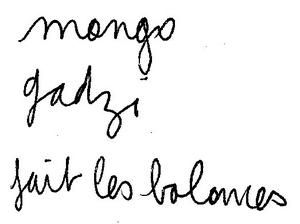 mongo
gadzi
fait les balances